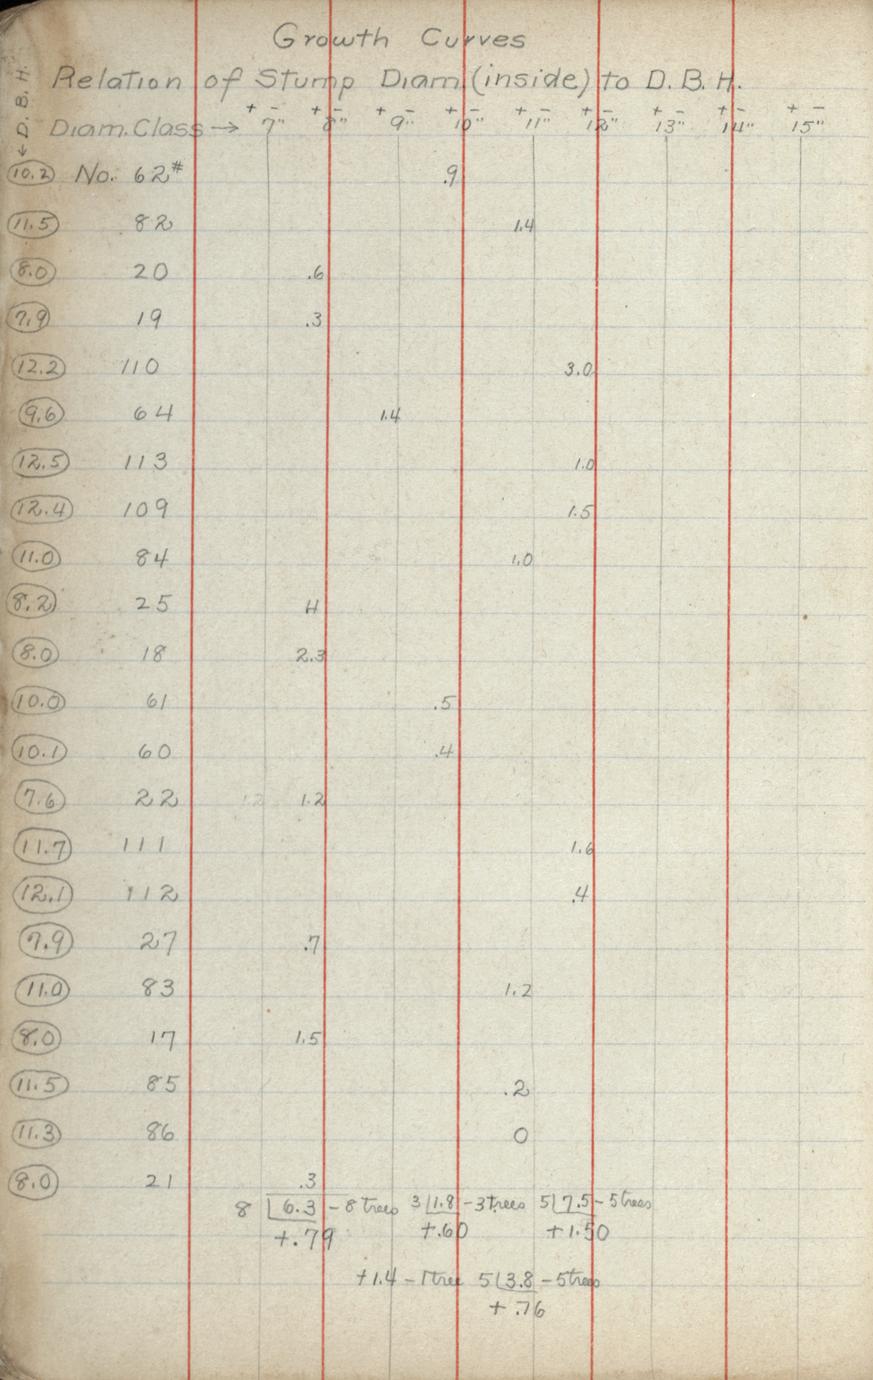 Growth Curves
Relation of Stump Diam. (inside) to D.B.H.
← D.B.H.
Diam. Class → + 7" - + 8" - + 9" - + 10" - + 11" - + 12" - + 13" - + 14" - + 15" -
10.2 No. 62# .9
11.5 82 1.4
8.0 20 .6
7.9 19 .3
12.2 110 3.0
9.6 64 1.4
12.5 113 1.0
12.4 109 1.5
11.0 84 1.0
8.2 25
8.0 18 2.3
10.0 61 .5
10.1 60 .4
7.6 22 1.2
11.7 111 1.6
12.1 112 .4
7.9 27 .7
11.0 83 1.2
8.0 17 1.5
11.5 85 .2
11.3 86 0
8.0 21 .3
8 6.3 - 8 trees 3 1.8 - 3 trees 5 7.5 - 5 trees
+.79 +.60 +1.50
+1.4 - 1 tree 5 3.8 - 5 trees
+.76